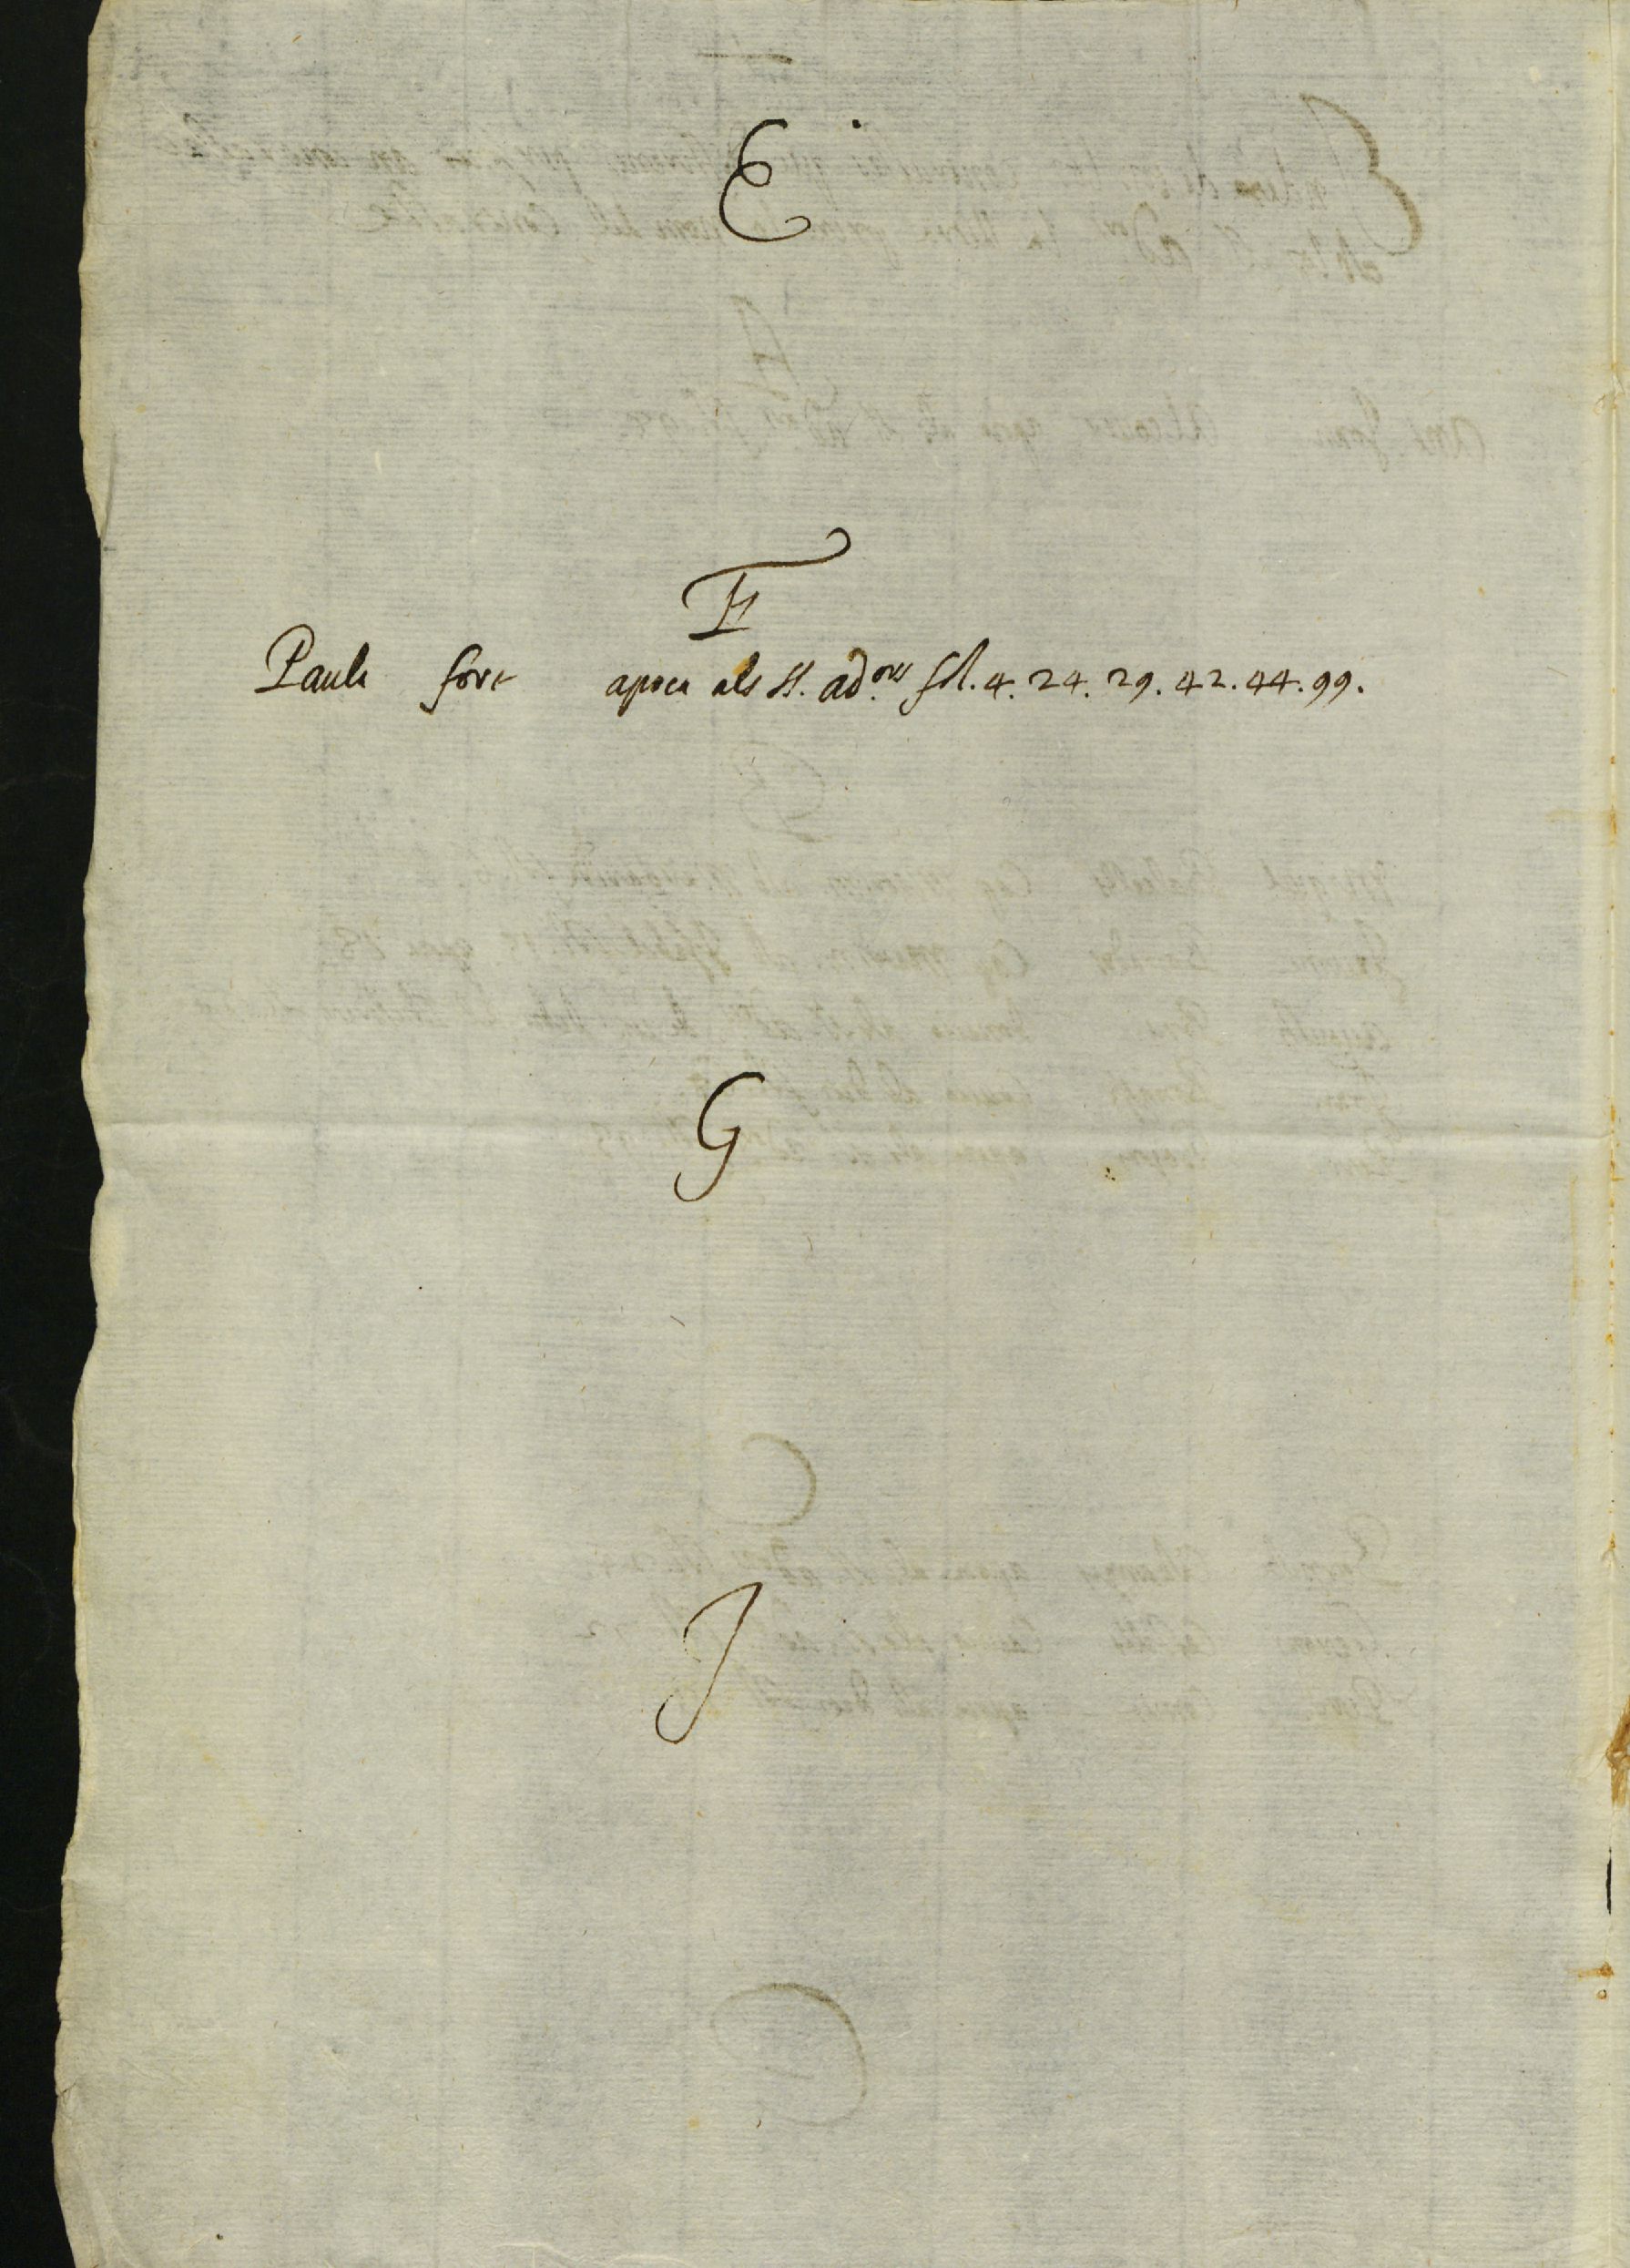 E
F
Paula fore apoca als SS. ad.ors fol. 4. 24. 29. 42. 44. 99.
G
J